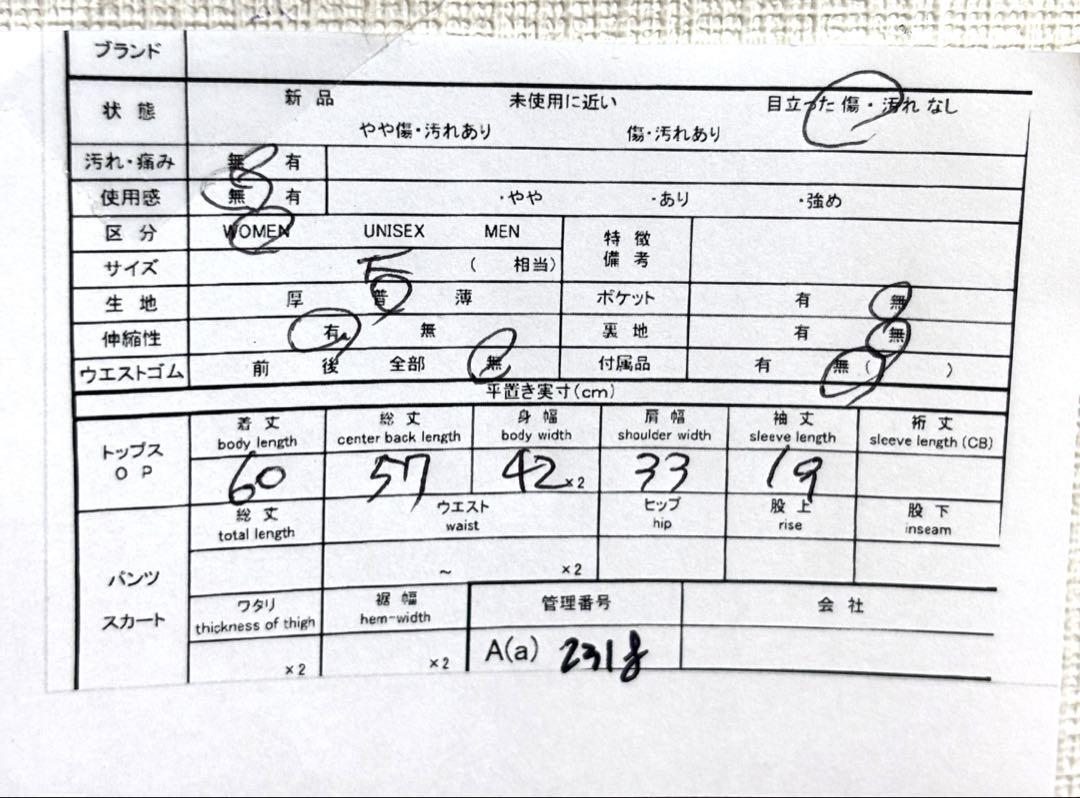 ブランド
状態 新品 未使用に近い 目立った傷・汚れなし
やや傷・汚れあり 傷・汚れあり
汚れ・痛み 無 有
使用感 無 有 ・やや ・あり ・強め
区分 WOMEN UNISEX MEN 特徴
備考
サイズ 5 ( 相当)
生地 厚 普 薄 ポケット 有 無
伸縮性 有 無 裏地 有 無
ウエストゴム 前 後 全部 無 付属品 有 無 ( )
平置き実寸(cm)
トップス
OP
着丈 総丈 身幅 肩幅 袖丈 裄丈
body length center back length body width shoulder width sleeve length sleeve length (CB)
60 57 42 ×2 33 19
パンツ
スカート
総丈 ウエスト ヒップ 股上 股下
total length waist hip rise inseam
~ ×2
ワタリ 裾幅 管理番号 会社
thickness of thigh hem-width
×2 ×2 A(a) 231g